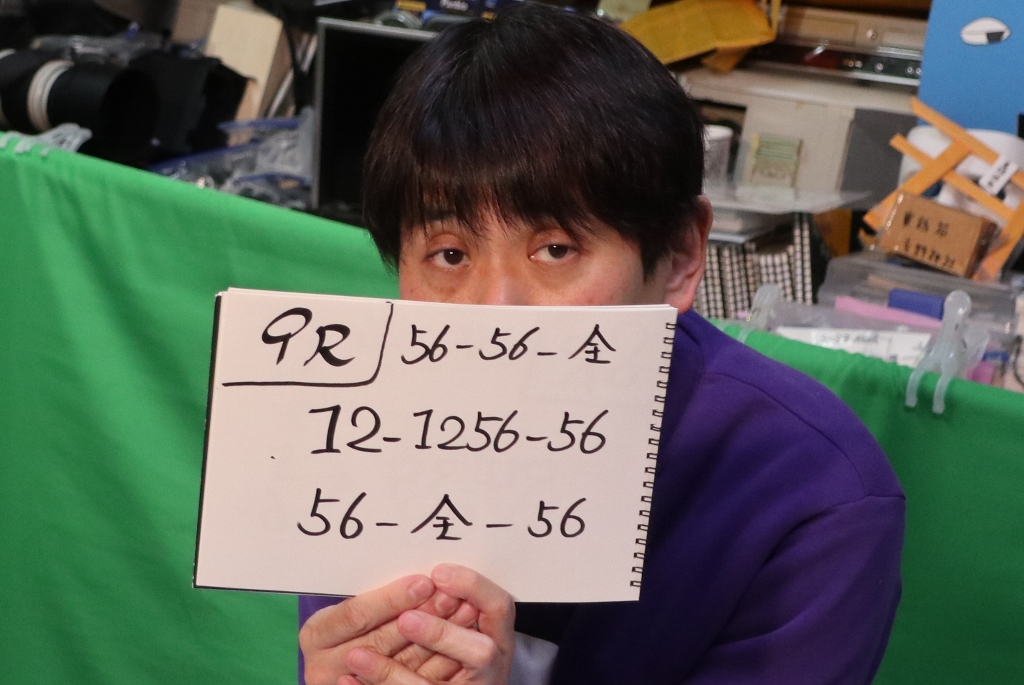 9R 56-56-全
12-1256-56
56-全-56